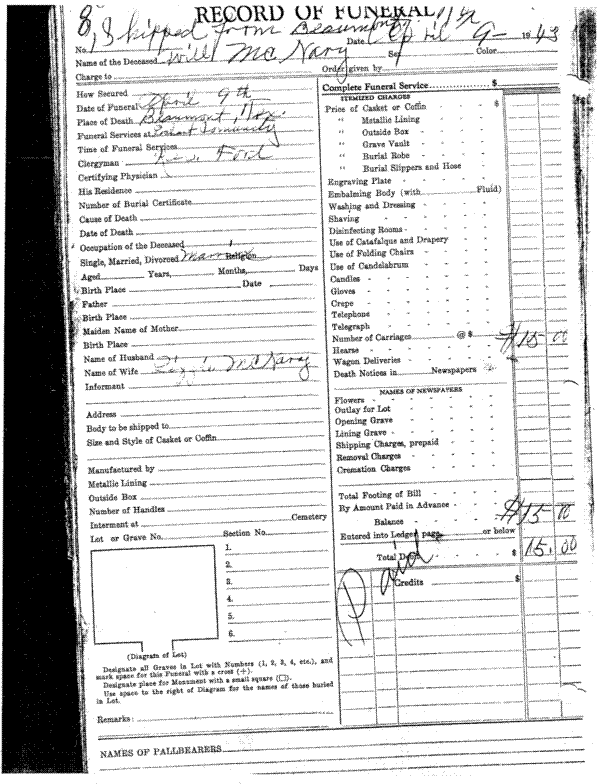 RECORD OF FUNERAL
8, Shipped from Beaumont
No. Date April 9- 1943
Name of the Deceased Will McNary Sex Color
Charge to Order given by
How Secured
Date of Funeral April 9th
Place of Death Beaumont, Tex.
Funeral Services at Community
Time of Funeral Services
Clergyman Ford
Certifying Physician
His Residence
Number of Burial Certificate
Cause of Death
Date of Death
Occupation of the Deceased
Single, Married, Divorced Married Religion
Aged Years, Months, Days
Birth Place Date
Father
Birth Place
Maiden Name of Mother
Birth Place
Name of Husband
Name of Wife Lizzie McNary
Informant
Address
Body to be shipped to
Size and Style of Casket or Coffin
Manufactured by
Metallic Lining
Outside Box
Number of Handles
Interment at Cemetery
Lot or Grave No. Section No.
1.
2.
3.
4.
5.
6.
(Diagram of Lot)
Designate all Graves in Lot with Numbers (1, 2, 3, 4, etc.), and
mark space for this Funeral with a cross (+).
Designate place for Monument with a small square (□).
Use space to the right of Diagram for the names of those buried
in Lot.
Remarks:
Complete Funeral Service $
ITEMIZED CHARGES
Price of Casket or Coffin $
" Metallic Lining
" Outside Box
" Grave Vault
" Burial Robe
" Burial Slippers and Hose
Engraving Plate
Embalming Body (with Fluid)
Washing and Dressing
Shaving
Disinfecting Rooms
Use of Catafalque and Drapery
Use of Folding Chairs
Use of Candelabrum
Candles
Gloves
Crepe
Telephone
Telegraph
Number of Carriages @ $
Hearse $15 00
Wagon Deliveries
Death Notices in Newspapers
NAMES OF NEWSPAPERS
Flowers
Outlay for Lot
Opening Grave
Lining Grave
Shipping Charges, prepaid
Removal Charges
Cremation Charges
Total Footing of Bill
By Amount Paid in Advance
Balance $15 00
Entered into Ledger page or below
Total $ 15.00
Paid
Credits $
NAMES OF PALLBEARERS